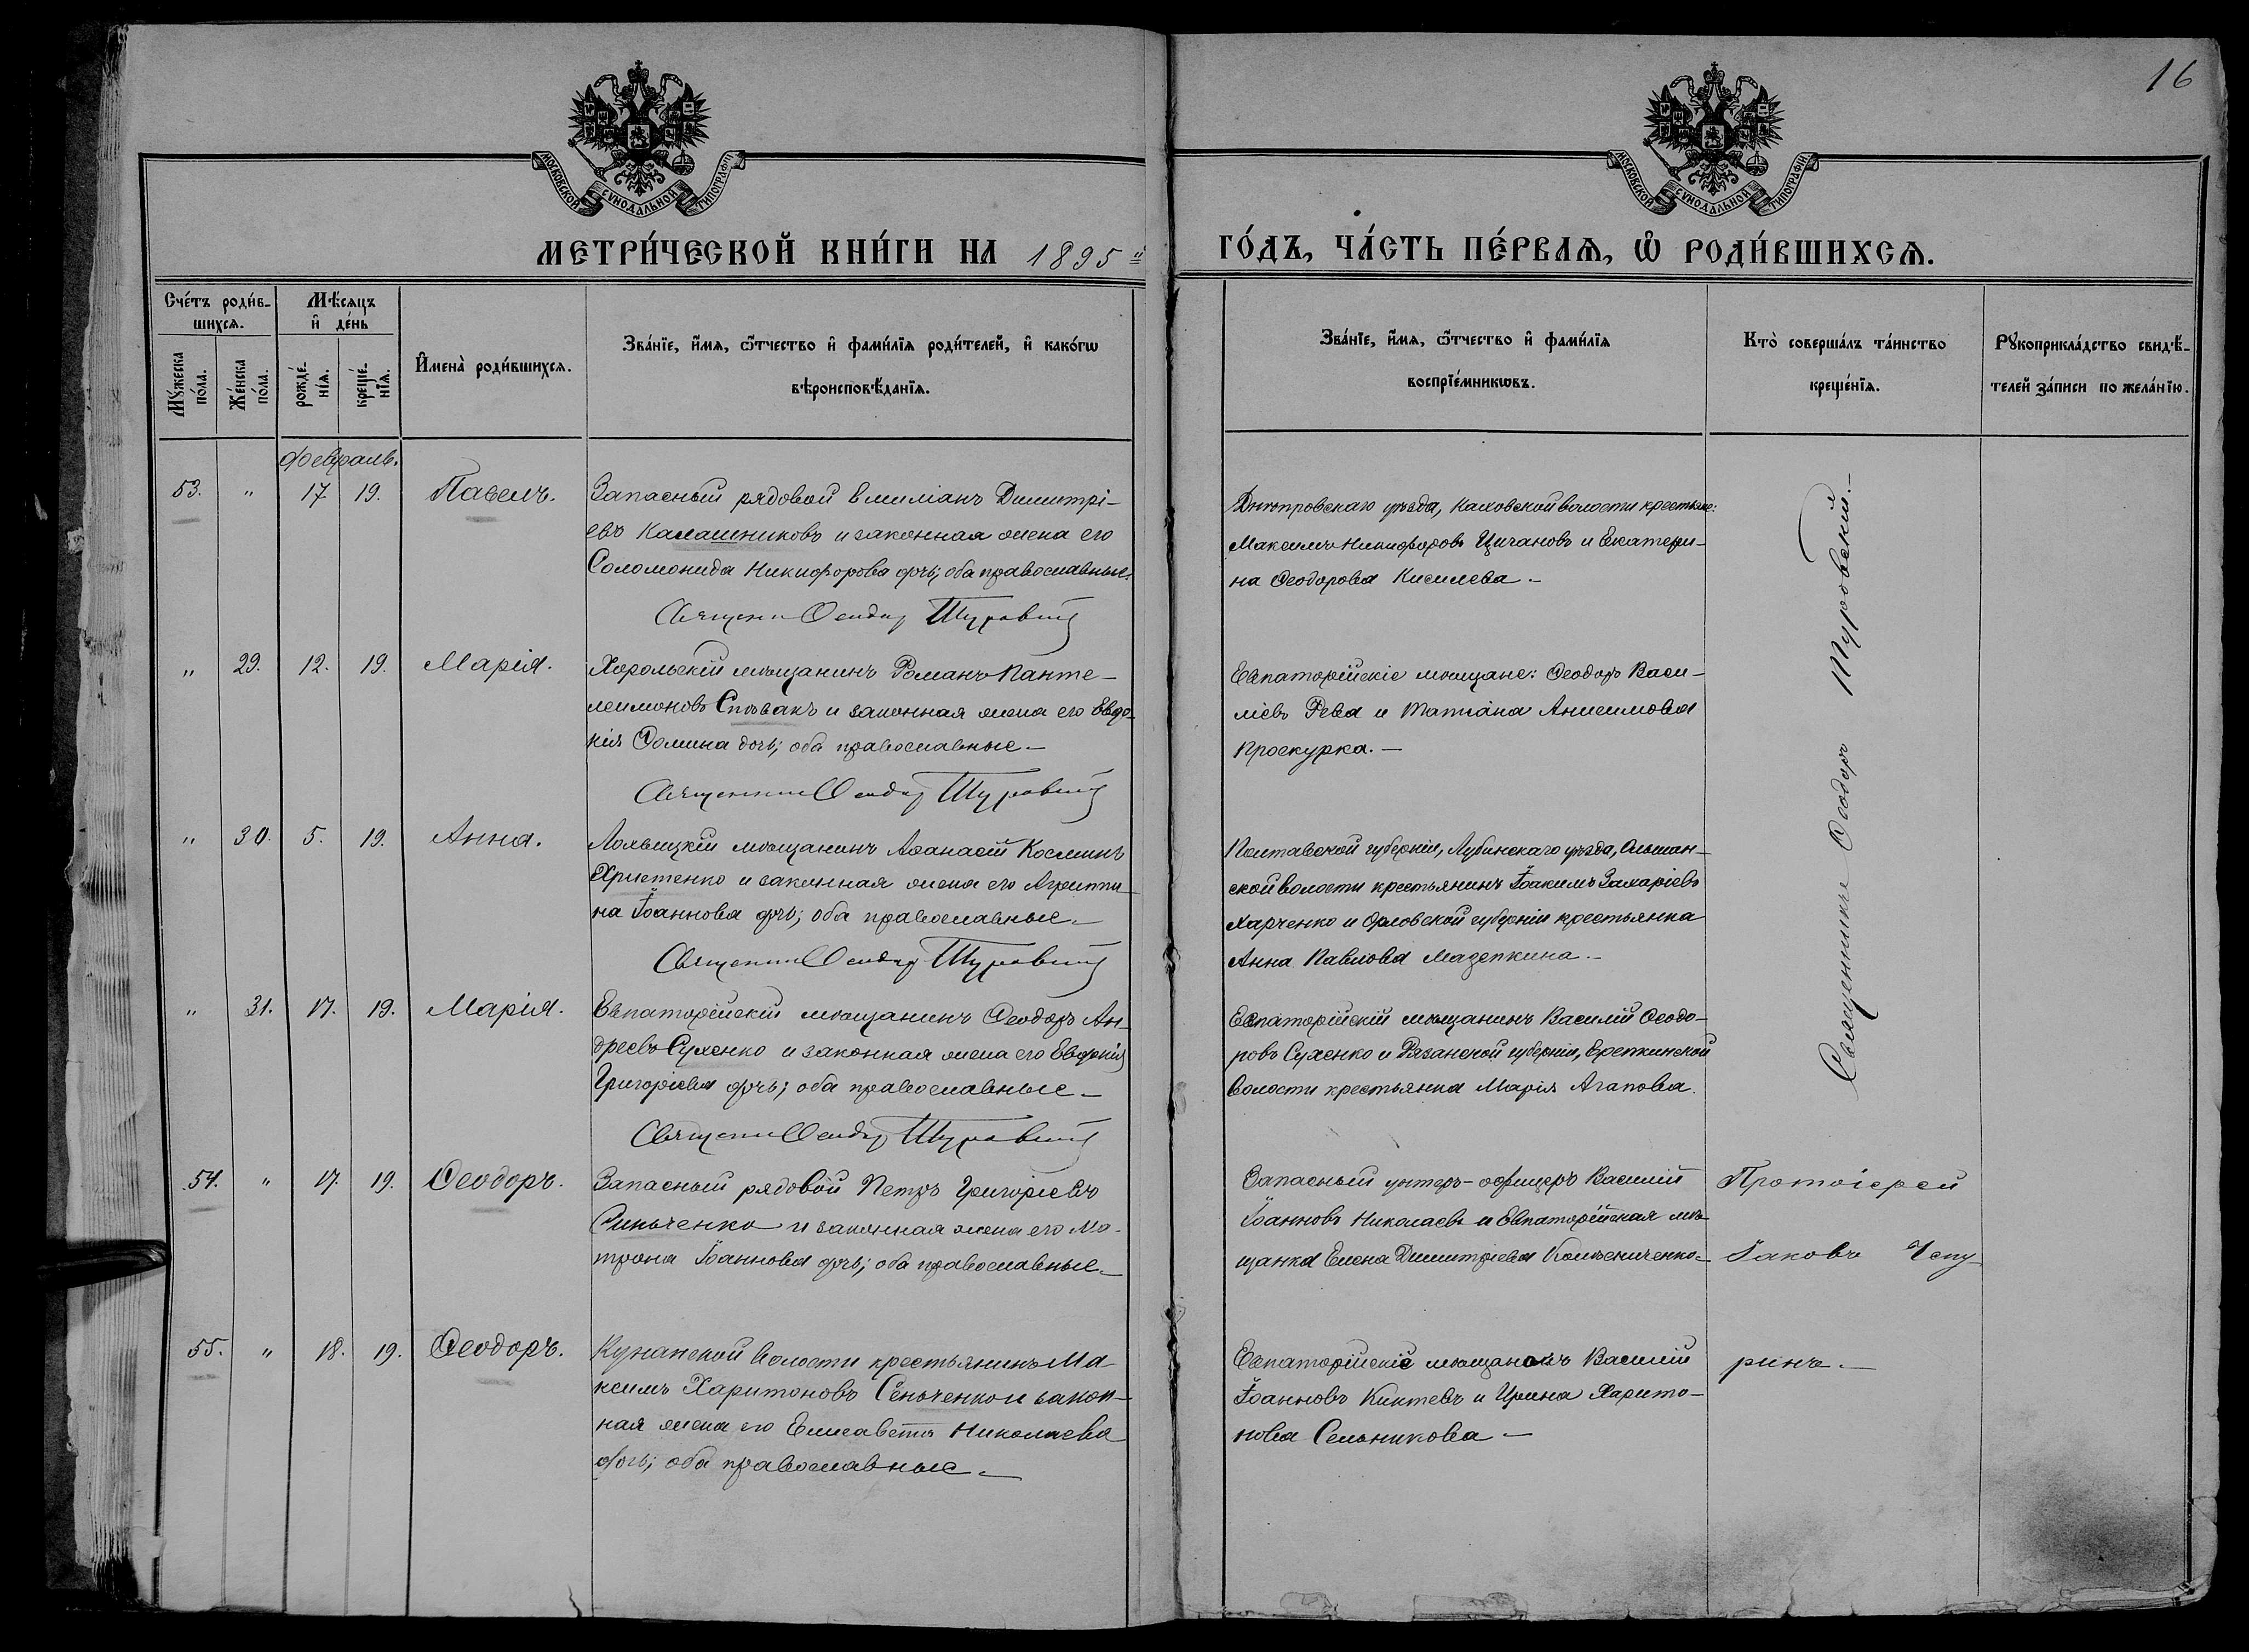 16
МОСКОВСКОЙ СѴНОДАЛЬНОЙ ТИПОГРАФІИ
МОСКОВСКОЙ СѴНОДАЛЬНОЙ ТИПОГРАФІИ
МЕТРИ́ЧЕСКОЙ КНИ́ГИ НА 1895 й
ГО́ДЪ, ЧА́СТЬ ПЕ́РВАѦ, Ѡ РОДИ́ВШИХСѦ.
Сче́тъ роди́в-
шихсѧ.
Мѣ́сѧцъ
и҆ де́нь
Мꙋ́жеска по́ла.
Же́нска по́ла.
рожде́-
нїѧ.
креще́-
нїѧ.
И҆мена̀ роди́вшихсѧ.
Зва́нїе, и҆́мѧ, ѻ҆́тчество и҆ фами́лїѧ роди́телей, и҆ како́гѡ
вѣроисповѣ́данїѧ.
Зва́нїе, и҆́мѧ, ѻ҆́тчество и҆ фами́лїѧ
воспрїе́мникѡвъ.
Кто̀ соверша́лъ та́инство
креще́нїѧ.
Рꙋкоприкла́дство свидѣ́-
телей за́писи по жела́нїю.
Февраль.
53. " 17 19. Павелъ.
Запасный рядовой Емиліанъ Димитрі-
евъ Калашниковъ и законная жена его
Соломонида Никифорова дочь; оба православные.
Священникъ Ѳеодоръ Туровскій
Днѣпровскаго уѣзда, Каховской волости крестьяне:
Максимъ Никифоровъ Цигановъ и Екатери-
на Ѳеодорова Киселева.-
" 29. 12. 19. Марія.
Хорольскій мѣщанинъ Романъ Панте-
леимоновъ Спѣвакъ и законная жена его Евдо-
кія Ѳомина дочь; оба православные-
Священникъ Ѳеодоръ Туровскій
Евпаторійскіе мѣщане: Ѳеодоръ Васи-
ліевъ Рева и Татіана Анисимова
Проскурка.-
" 30. 5. 19. Анна.
мѣщанинъ Аѳанасій Косминъ
Христенко и законная жена его Агриппи-
на Іоаннова дочь; оба православные-
Священникъ Ѳеодоръ Туровскій
Полтавской губерніи, Лубенскаго уѣзда, Ольшан-
ской волости крестьянинъ Іоакимъ Захаріевъ
Харченко и Орловской губерніи крестьянка
Анна Павлова Мазепкина.-
" 31. 17. 19. Марія.
Евпаторійскій мѣщанинъ Ѳеодоръ Ан-
дреевъ Сухенко и законная жена его Евдокія
Григоріева дочь; оба православные-
Священникъ Ѳеодоръ Туровскій
Евпаторійскій мѣщанинъ Василій Ѳеодо-
ровъ Сухенко и Рязанской губерніи, Ерепкинской
волости крестьянка Марія Агапова.
Священникъ Ѳеодоръ Туровскій.-
54. " 17. 19. Ѳеодоръ.
Запасный рядовой Петръ Григоріевъ
Синьченко и законная жена его Мо-
трона Іоаннова дочь; оба православные-
Запасный унтеръ-офицеръ Василій
Іоанновъ Николаевъ и Евпаторійская мѣ-
щанка Елена Димитріева
Протоіерей
Іаковъ Чепу-
ринъ.-
55. " 18. 19. Ѳеодоръ.
волости крестьянинъ Ма-
ксимъ Харитоновъ Сеньченко и закон-
ная жена его Елисавета Николаева
дочь; оба православные-
Евпаторійскіе Василій
Іоанновъ Киктевъ и Ирина Харито-
нова Сельникова-